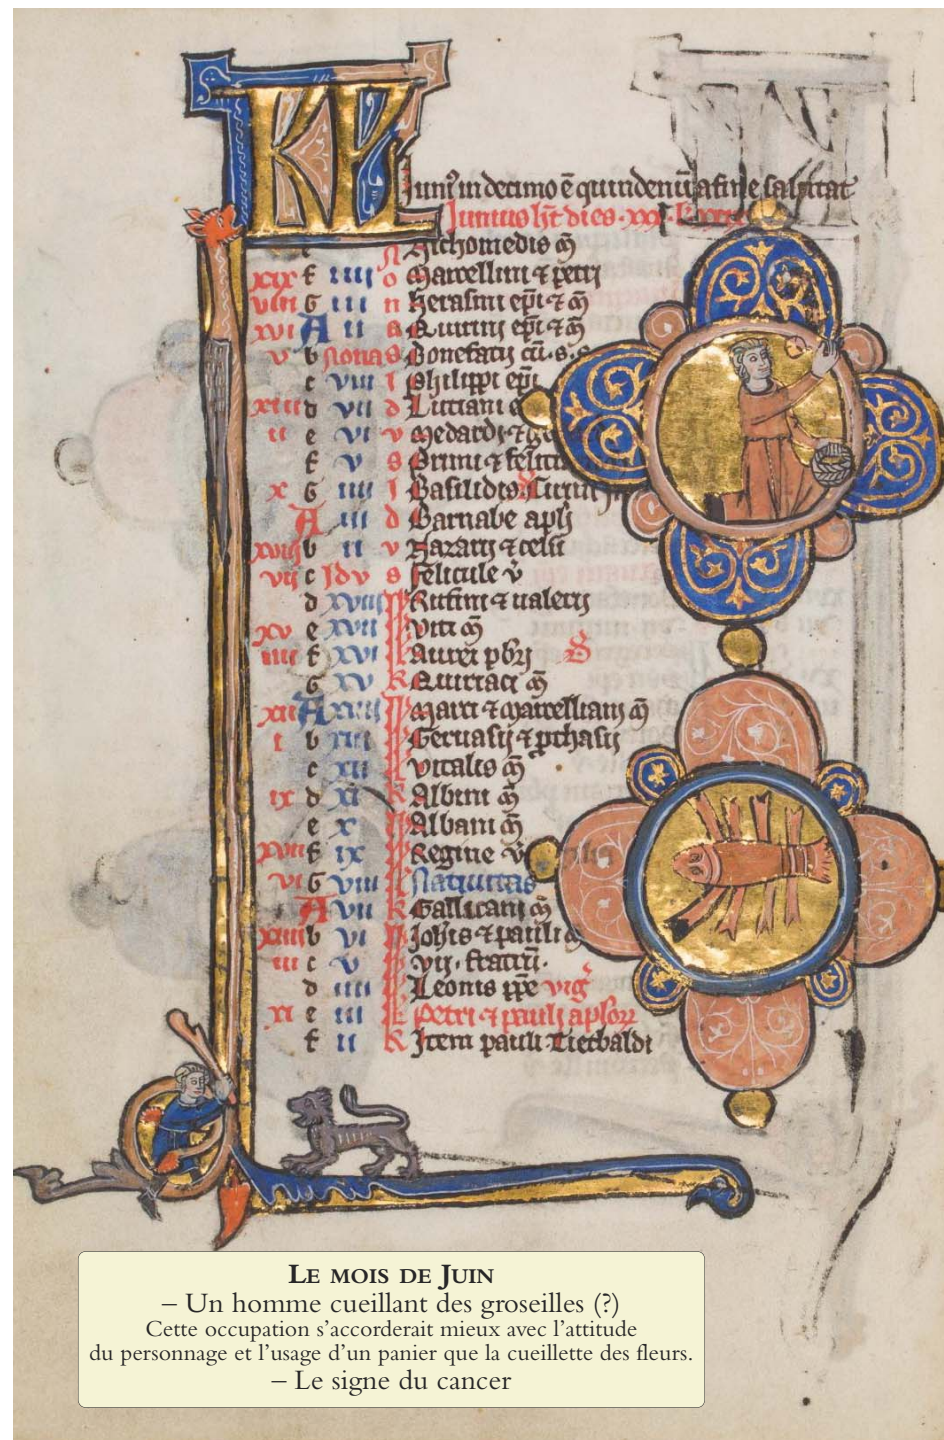 KL
Juni9 in decimo ē quindenū a fine salutat
Junius ht dies xxx
Nichomedis m̄
xix f iiii o Marcellini ⁊ petri
viii G iii n herasmi epi ⁊ m̄
xvi A ii a Quirini epi ⁊ m̄
v b Nonas s Bonefacij
c viii i philippi epi
xiii d vii d Luciani
ii e vi v Medardi ⁊
f v s Primi ⁊ felici
x G iiii i Basilidis Cirini
A iii d Barnabe apli
xviii b ii v Nazarij ⁊ celsi
vii c Idv s felicule v̄
d xviii Rufini ⁊ ualerij
xv e xvii viti m̄
iiii f xvi k Aurei pbri
G xv k Quiriaci m̄
xii A xiiii Marci ⁊ Marcelliani m̄
i b xiii Geruasij ⁊ pthasij
c xii k vitalis m̄
ix d xi k Albini m̄
e x Albani m̄
xvii f ix k Regine v̄
vi G viii k Natiuitas
A vii k Gallicani m̄
xiiii b vi Johis ⁊ pauli
iii c v vij. fratrū.
d iiii k Leonis ppe vig
xi e iii k petri ⁊ pauli aplorz
f ii k Item pauli Tietbaldi
LE MOIS DE JUIN
– Un homme cueillant des groseilles (?)
Cette occupation s’accorderait mieux avec l’attitude
du personnage et l’usage d’un panier que la cueillette des fleurs.
– Le signe du cancer